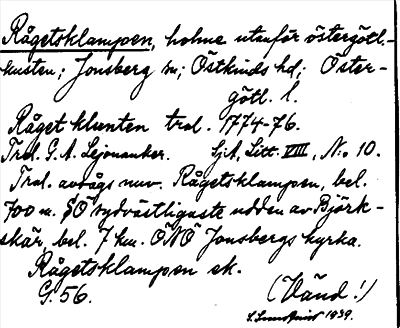 Rågetsklampen, holme utanför östergötl.-
kusten; Jonsberg sn; Östkinds hd; Öster-
götl. l.
Råget klunten trol. 1774-76.
Trol. G. A. Lejonanker. SjA, Litt. VIII, No 10.
Trol. avsågs nuv. Rågetsklampen, bel.
700 m. SO sydvästligaste udden av Björk-
skär, bel. 7 km. ÖNÖ Jonsbergs kyrka.
Rågetsklampen ek.
G. 56. (Vänd!)
1939.